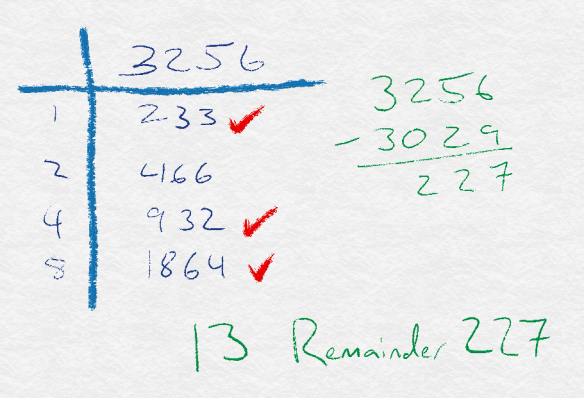 3256
1 233 ✓
2 466
4 932 ✓
8 1864 ✓
3256
- 3029
227
13 Remainder 227